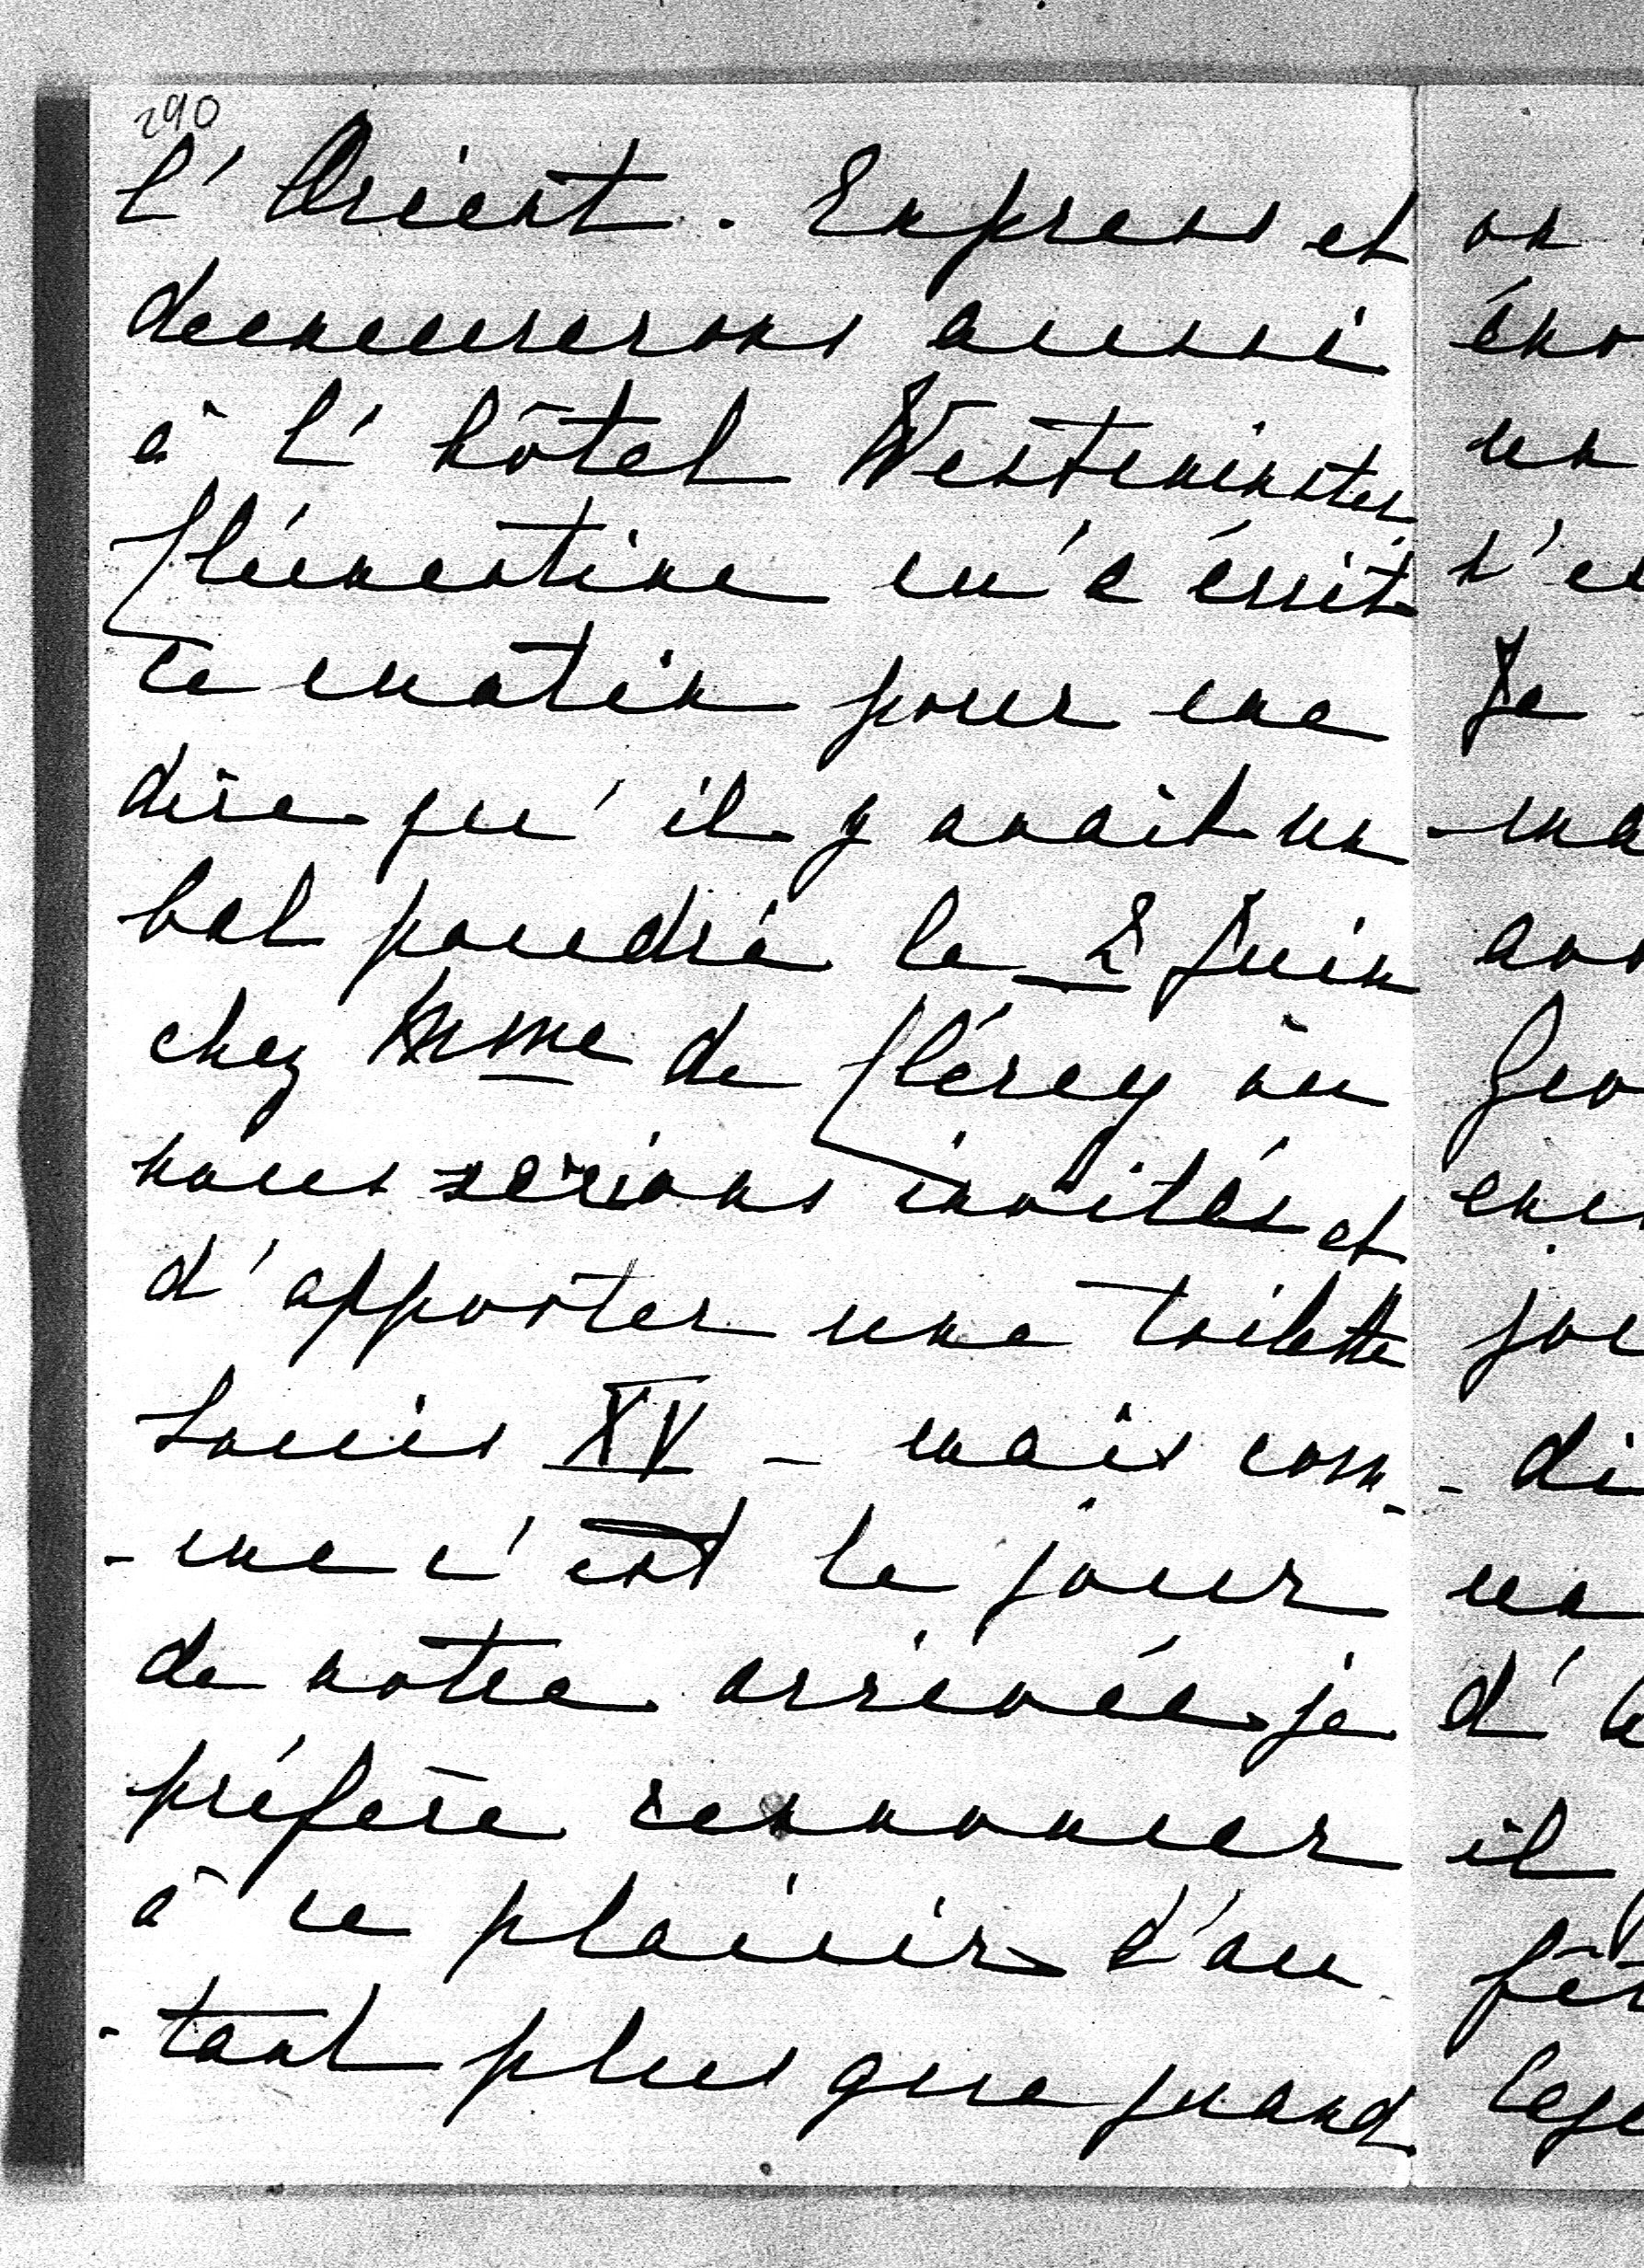 290
l'Orient. Express et
demeurerons aussi
à l'hôtel Westminster
Clémentine m'a écrit
ce matin pour me
dire qu'il y avait un
bal poudré le 2 Juin
chez Mme de Clérey où
nous serions invités et
d'apporter une toilette
Louis XV - mais com-
-me c'est le jour
de notre arrivée je
préfère rennoncer
à ce plaisir d'au
-tant plus que quand
on
un
Je
un
il